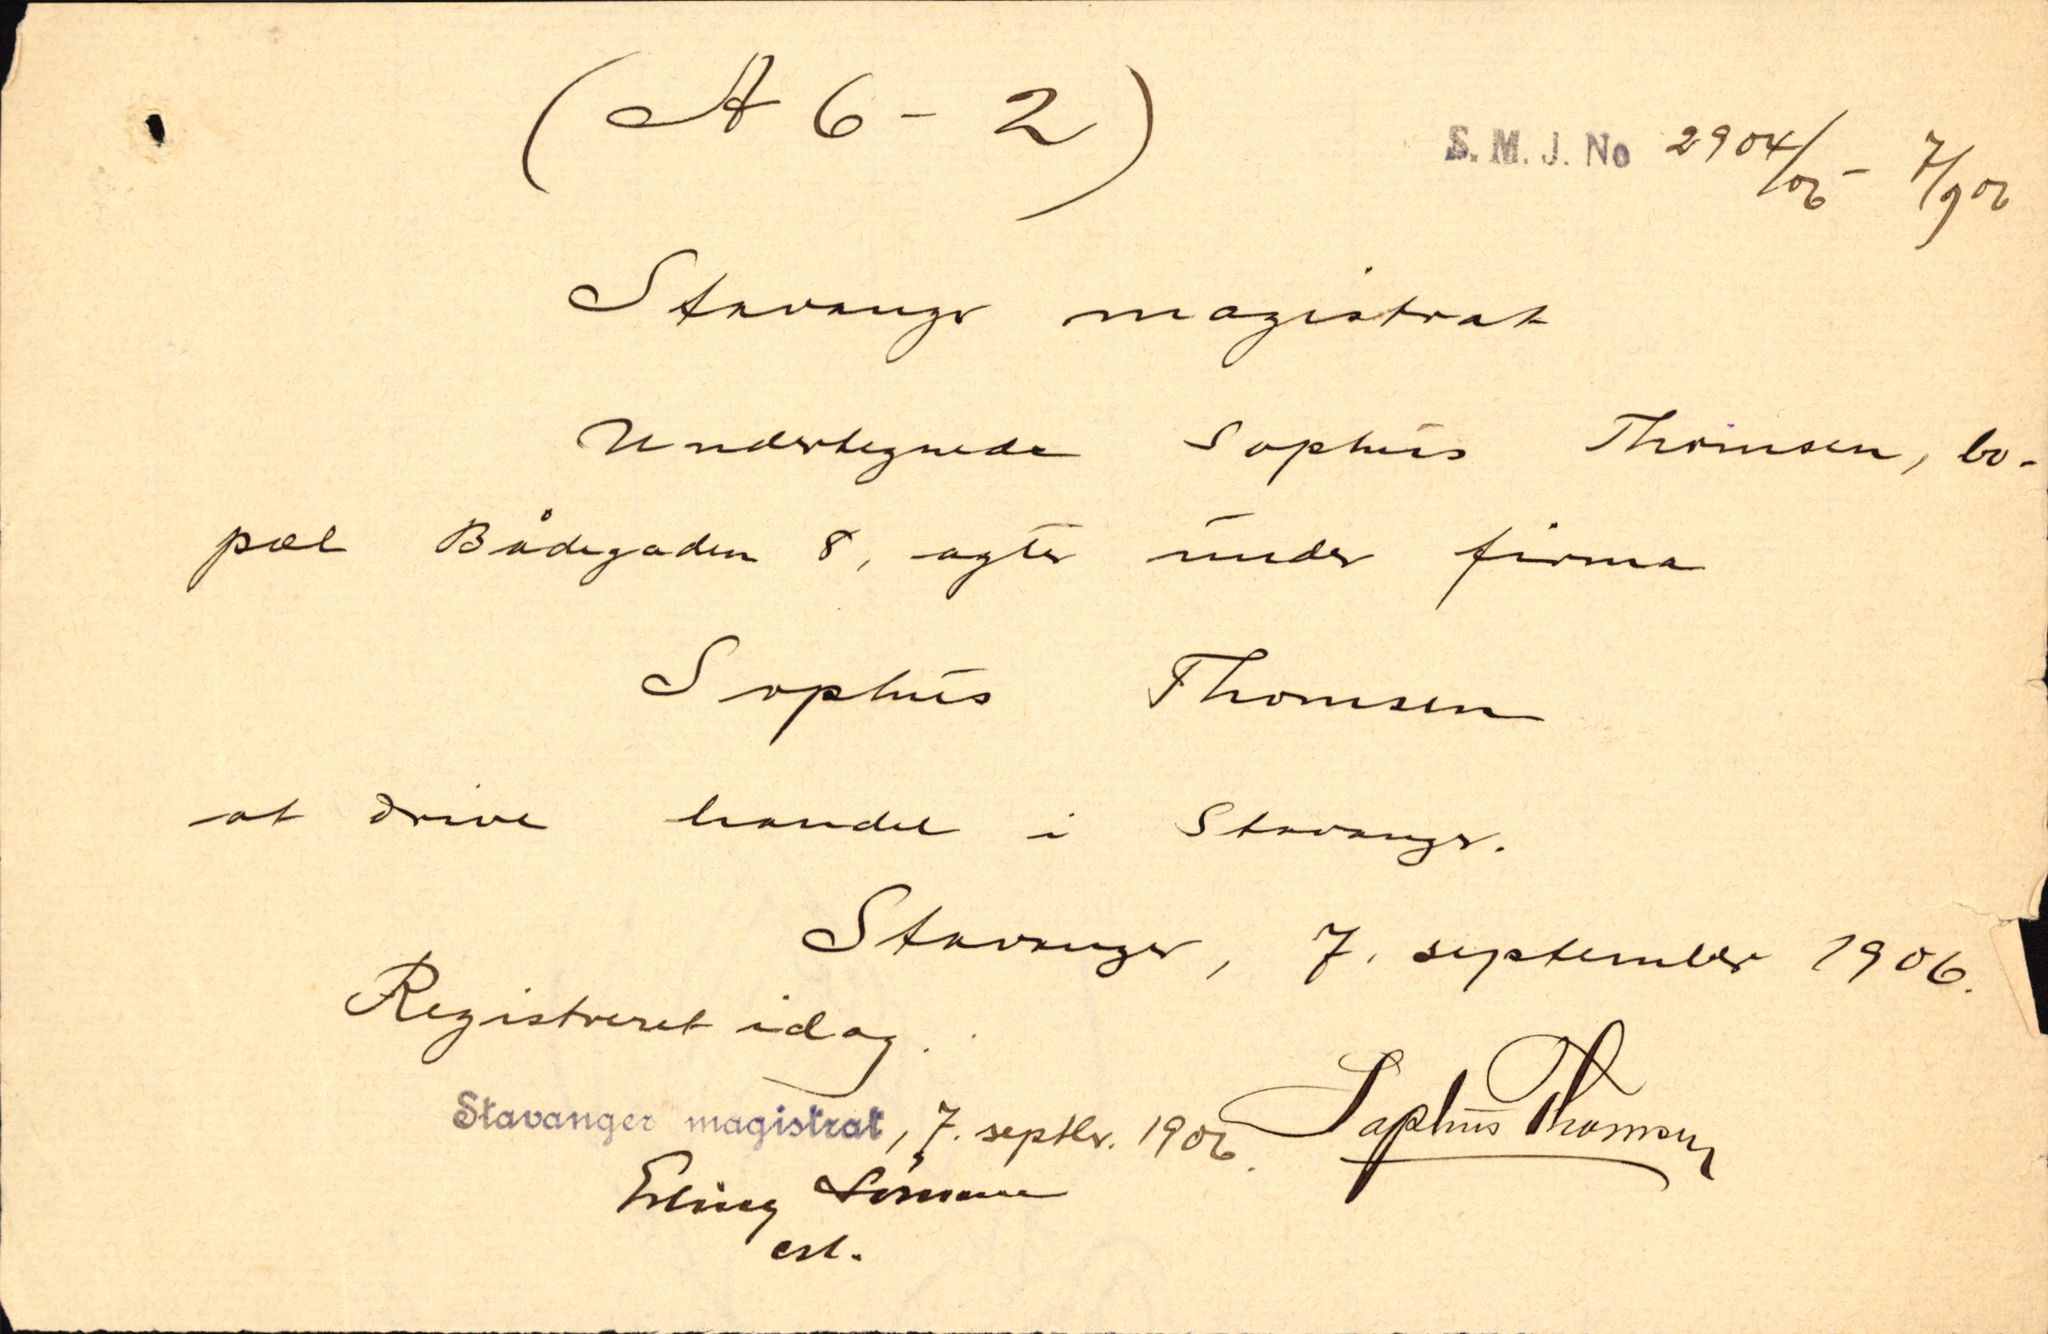 (A 6 - 2)
S. M. J. No 2904/06 - 7/9 06
Stavanger magistrat
Undertegnede Sophus Thomsen, bo-
pæl Bådegaden 8, agter under firma
Sophus Thomsen
at drive handel i Stavanger.
Stavanger, 7. september 1906.
Registreret idag.
Stavanger magistrat, 7. septbr. 1906.
Sophus Thomsen
Erling
cst.